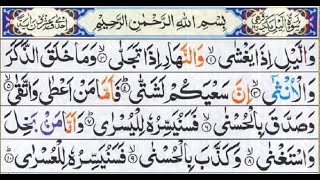 بِسْمِ اللهِ الرَّحْمٰنِ الرَّحِيْمِ
وَالَّيْلِ اِذَا يَغْشٰى ۙ۝۱ وَالنَّهَارِ اِذَا تَجَلّٰى ۙ۝۲ وَمَا خَلَقَ الذَّكَرَ
وَالْاُنْثٰٓى ۙ۝۳ اِنَّ سَعْيَكُمْ لَشَتّٰى ؕ۝۴ فَاَمَّا مَنْ اَعْطٰى وَاتَّقٰى ۙ۝۵
وَصَدَّقَ بِالْحُسْنٰى ۙ۝۶ فَسَنُيَسِّرُهٗ لِلْيُسْرٰى ؕ۝۷ وَاَمَّا مَنْۢ بَخِلَ
وَاسْتَغْنٰى ۙ۝۸ وَكَذَّبَ بِالْحُسْنٰى ۙ۝۹ فَسَنُيَسِّرُهٗ لِلْعُسْرٰى ؕ۝۱۰